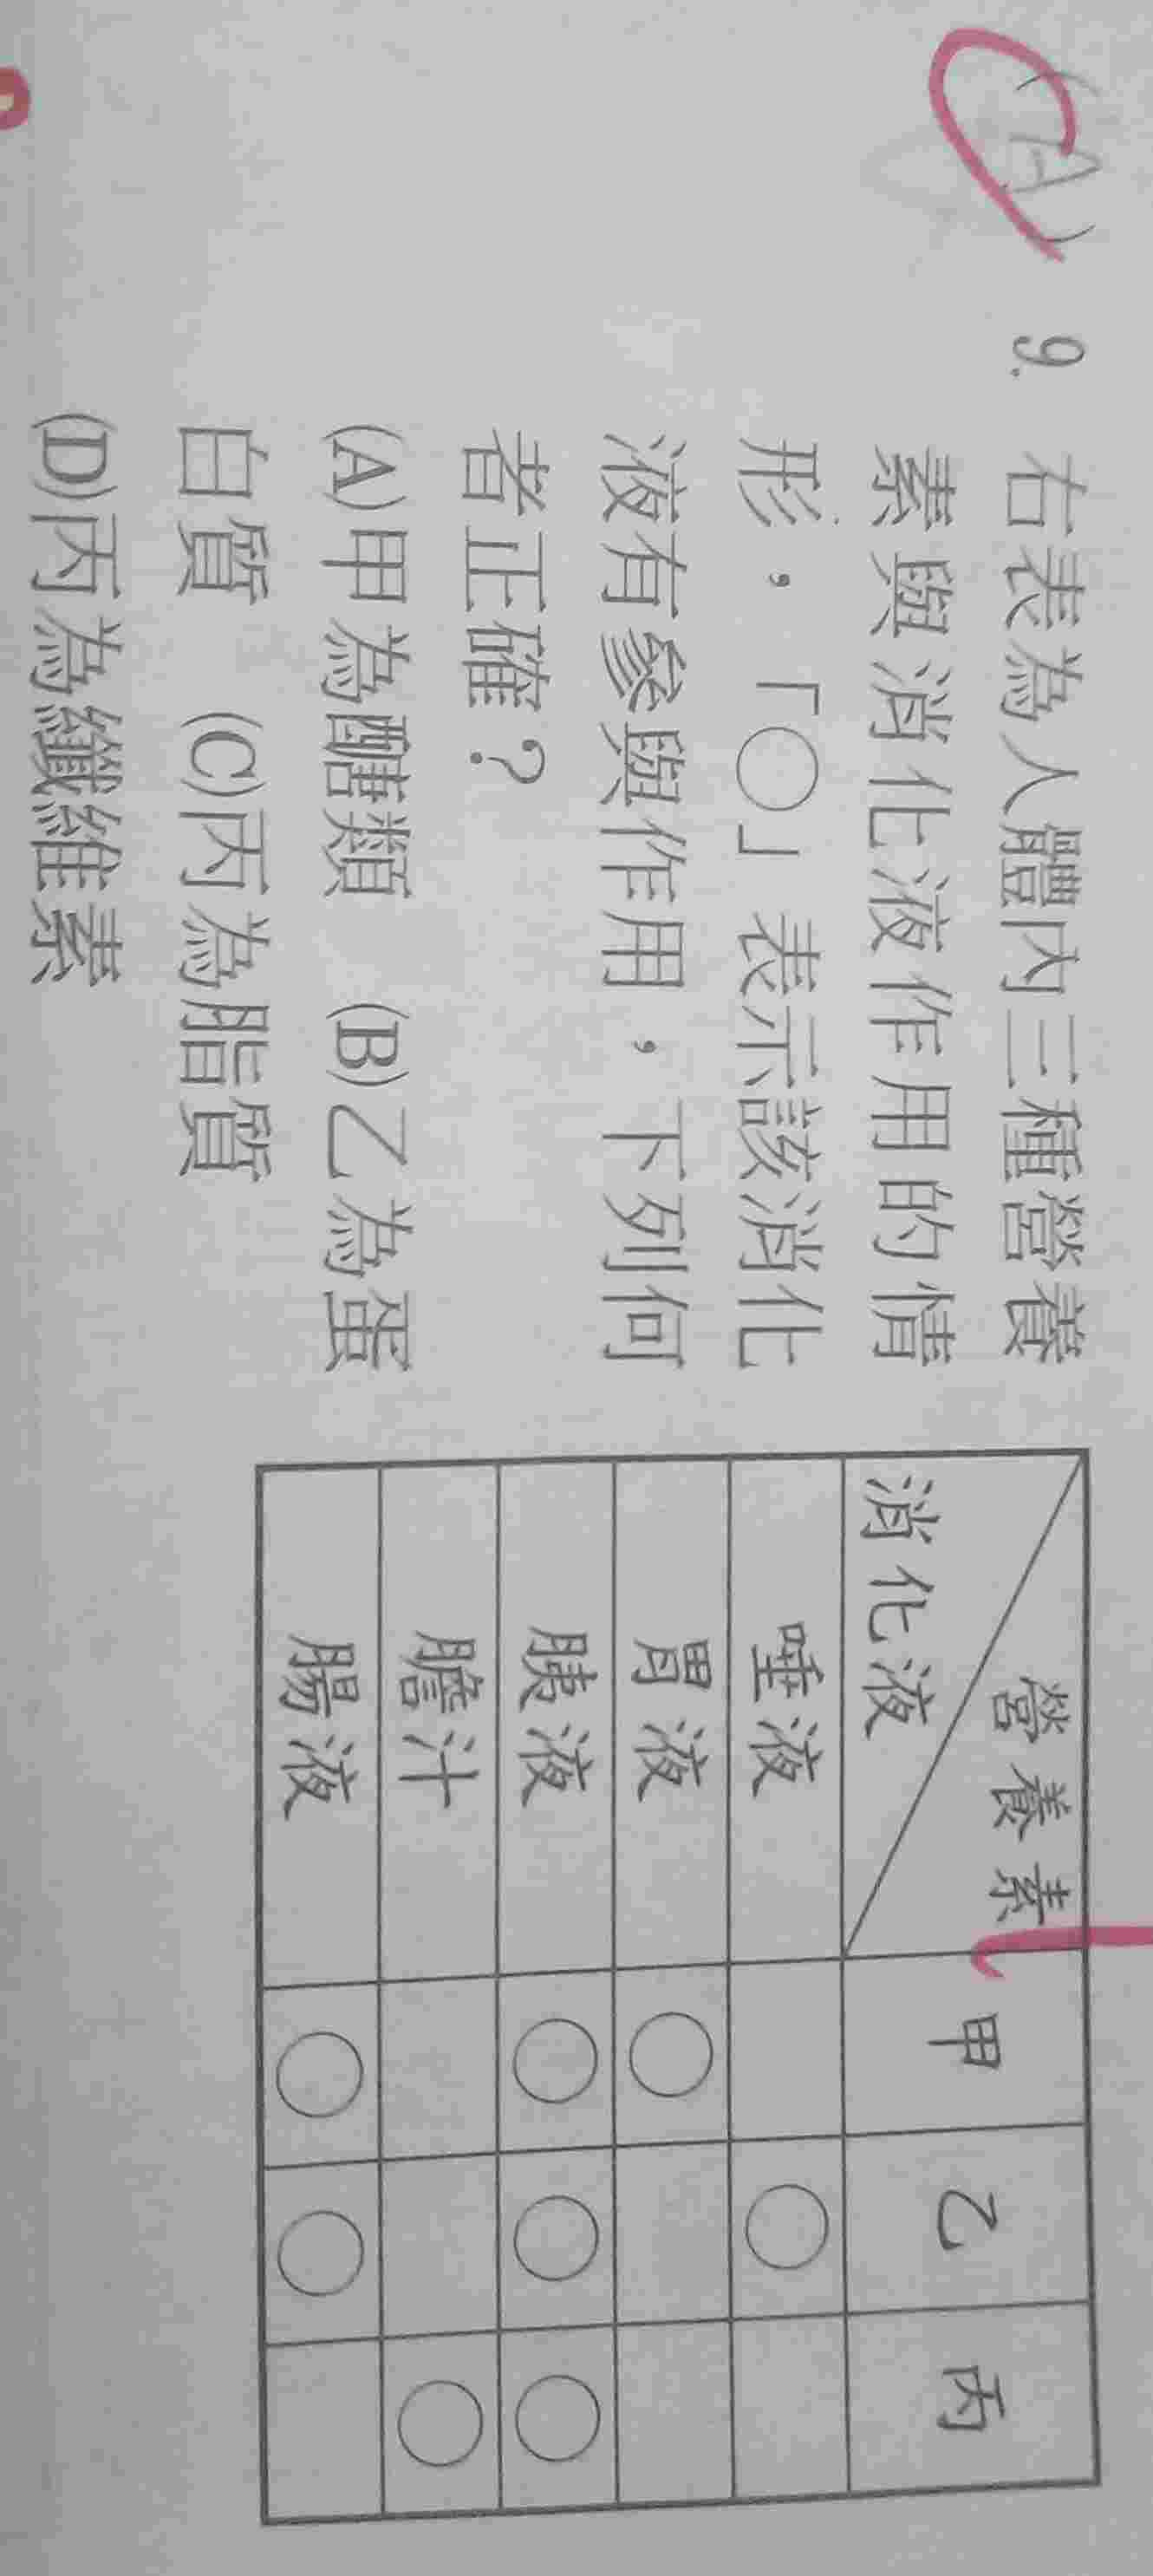 (A) 9. 右表為人體內三種營養
素與消化液作用的情
形，「○」表示該消化
液有參與作用，下列何
者正確？
(A)甲為醣類 (B)乙為蛋
白質 (C)丙為脂質
(D)丙為纖維素
營養素 消化液 甲 乙 丙
唾液 ○
胃液 ○
胰液 ○ ○ ○
膽汁 ○
腸液 ○ ○